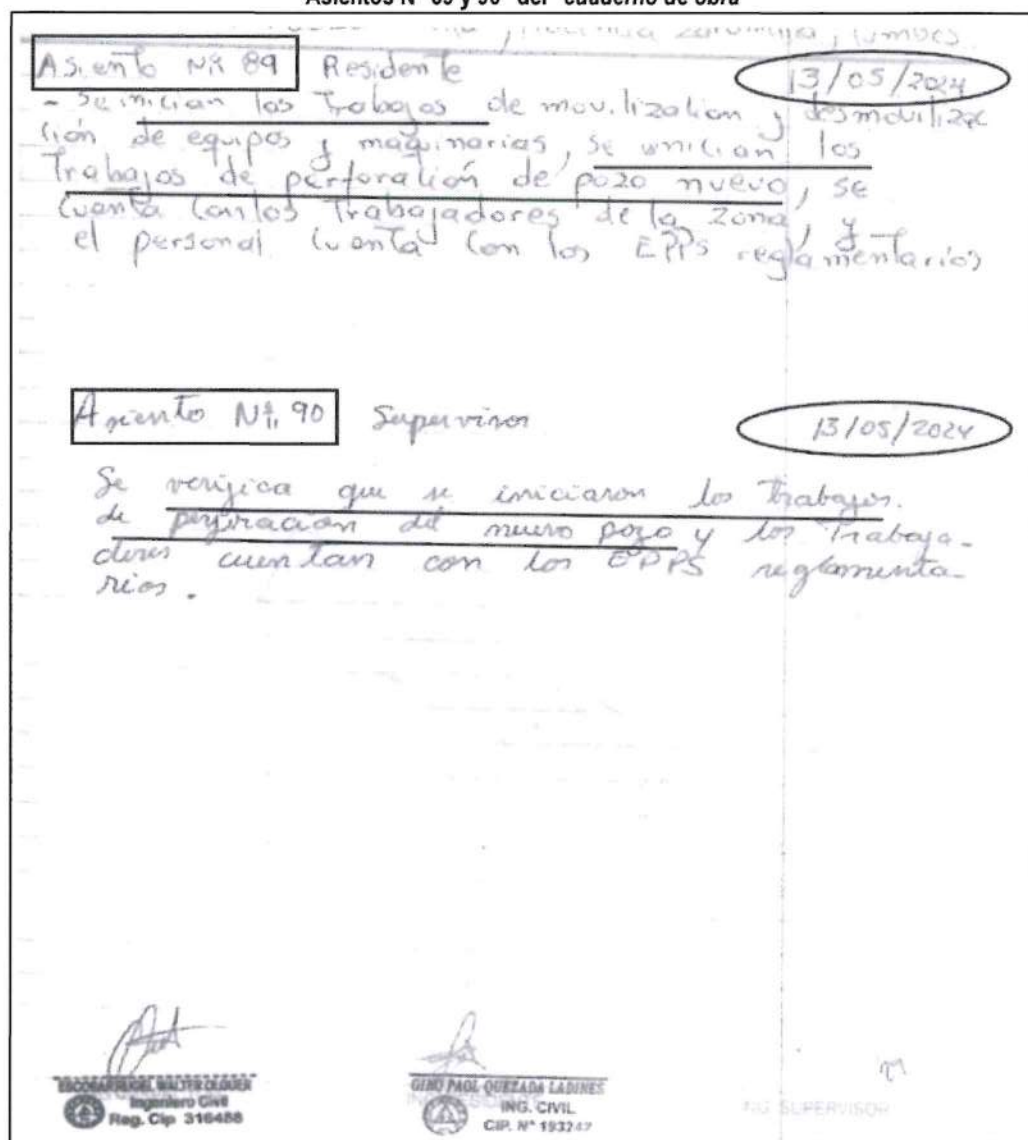 Asientos N° 89 y 90 del "cuaderno de obra"
Zarumilla, Tumbes.
Asiento Nº 89 Residente 13/05/2024
- Se inician los Trabajos de movilización y desmovilizac
ión de equipos y maquinarias, se inician los
Trabajos de perforación de pozo nuevo, se
cuenta con los Trabajadores de la zona, y
el personal cuenta con los EPPS reglamentarios
Asiento Nº 90 Supervisor 13/05/2024
Se verifica que se iniciaron los trabajos.
de perforación del nuevo pozo y los Trabaja-
dores cuentan con los EPPS reglamenta-
rios.
WALTER
Ingeniero Civil
Reg. Cip 316488
GINO PAOL QUEZADA LADINES
ING. CIVIL
CIP. N° 193247
ING. SUPERVISOR